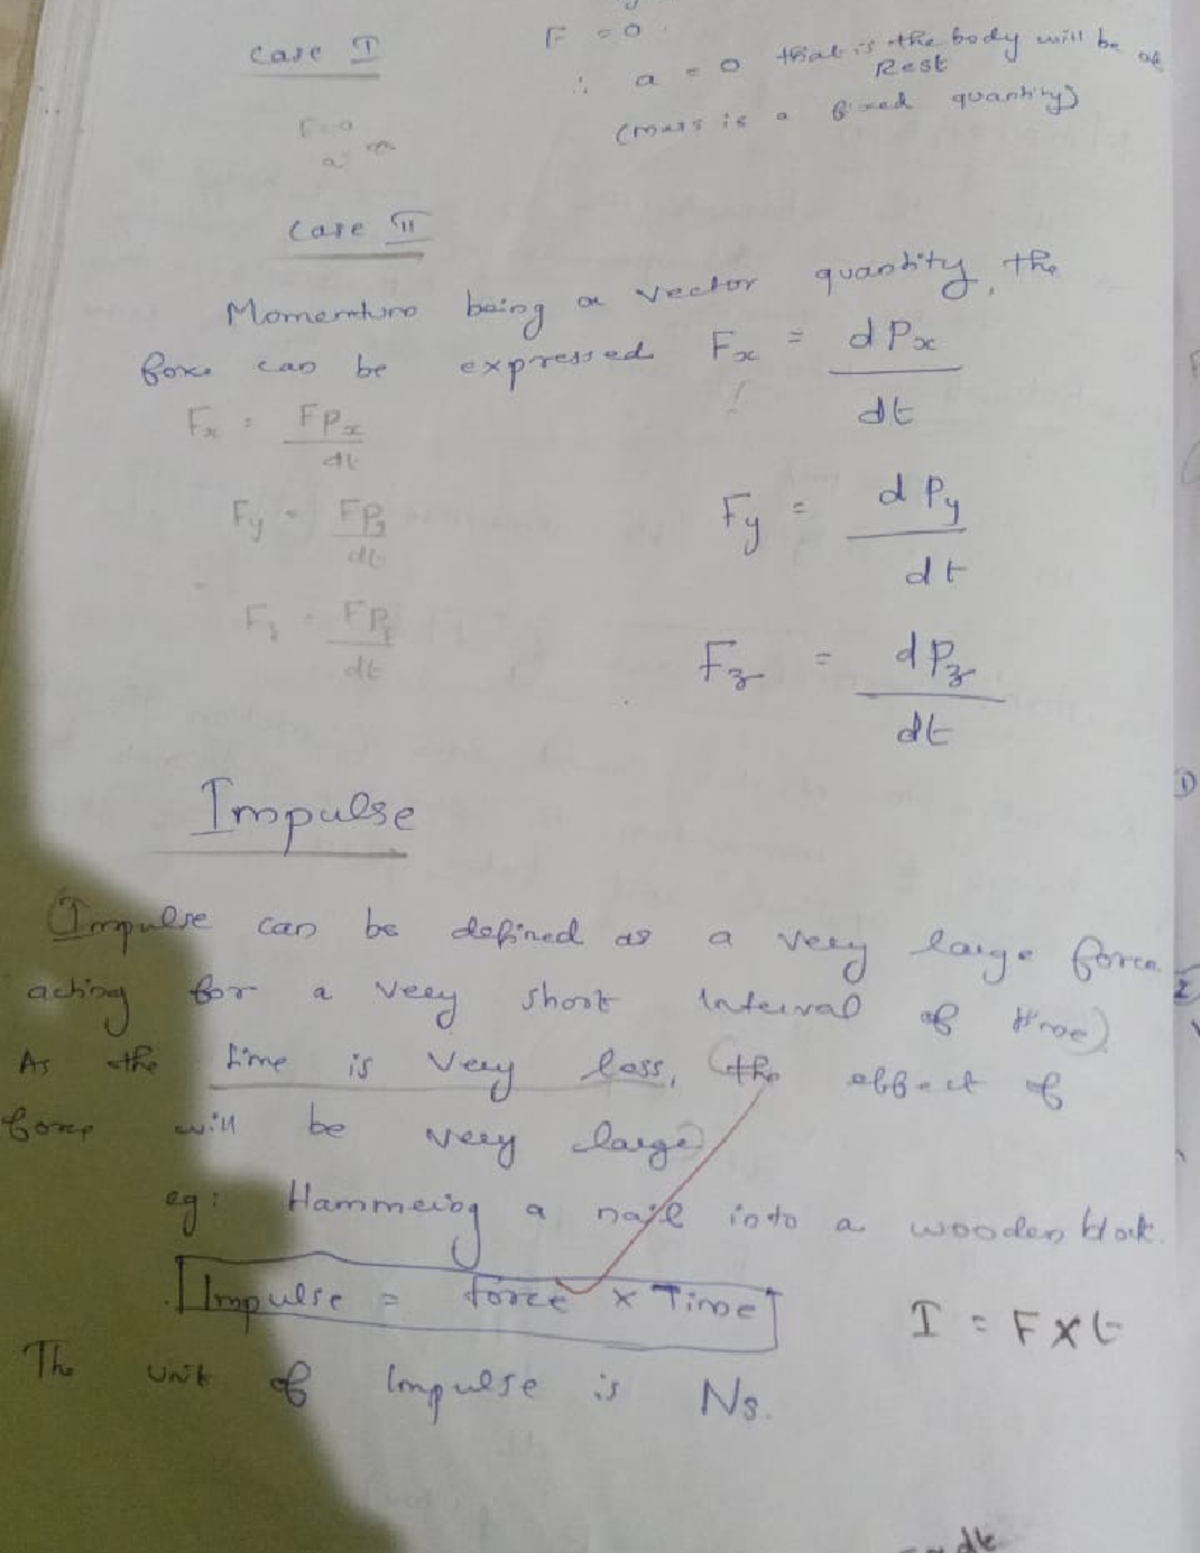 F = 0
Case I
∴ a = 0 that is the body will be at
Rest
(mass is a fixed quantity)
F=0
a m
Case II
Momentum being a vector quantity, the
force can be expressed Fx = dPx
dt
Fx = FPx
dt
Fy = dPy
dt
Fy = FPy
dt
Fz = dPz
dt
Fz = FPz
dt
Impulse
(Impulse can be defined as a very large force
acting for a very short interval of time)
As the time is very less, (the effect of
force will be very large)
eg: Hammering a nail into a wooden block.
Impulse = force × Time
I = F × t
The unit of Impulse is Ns.